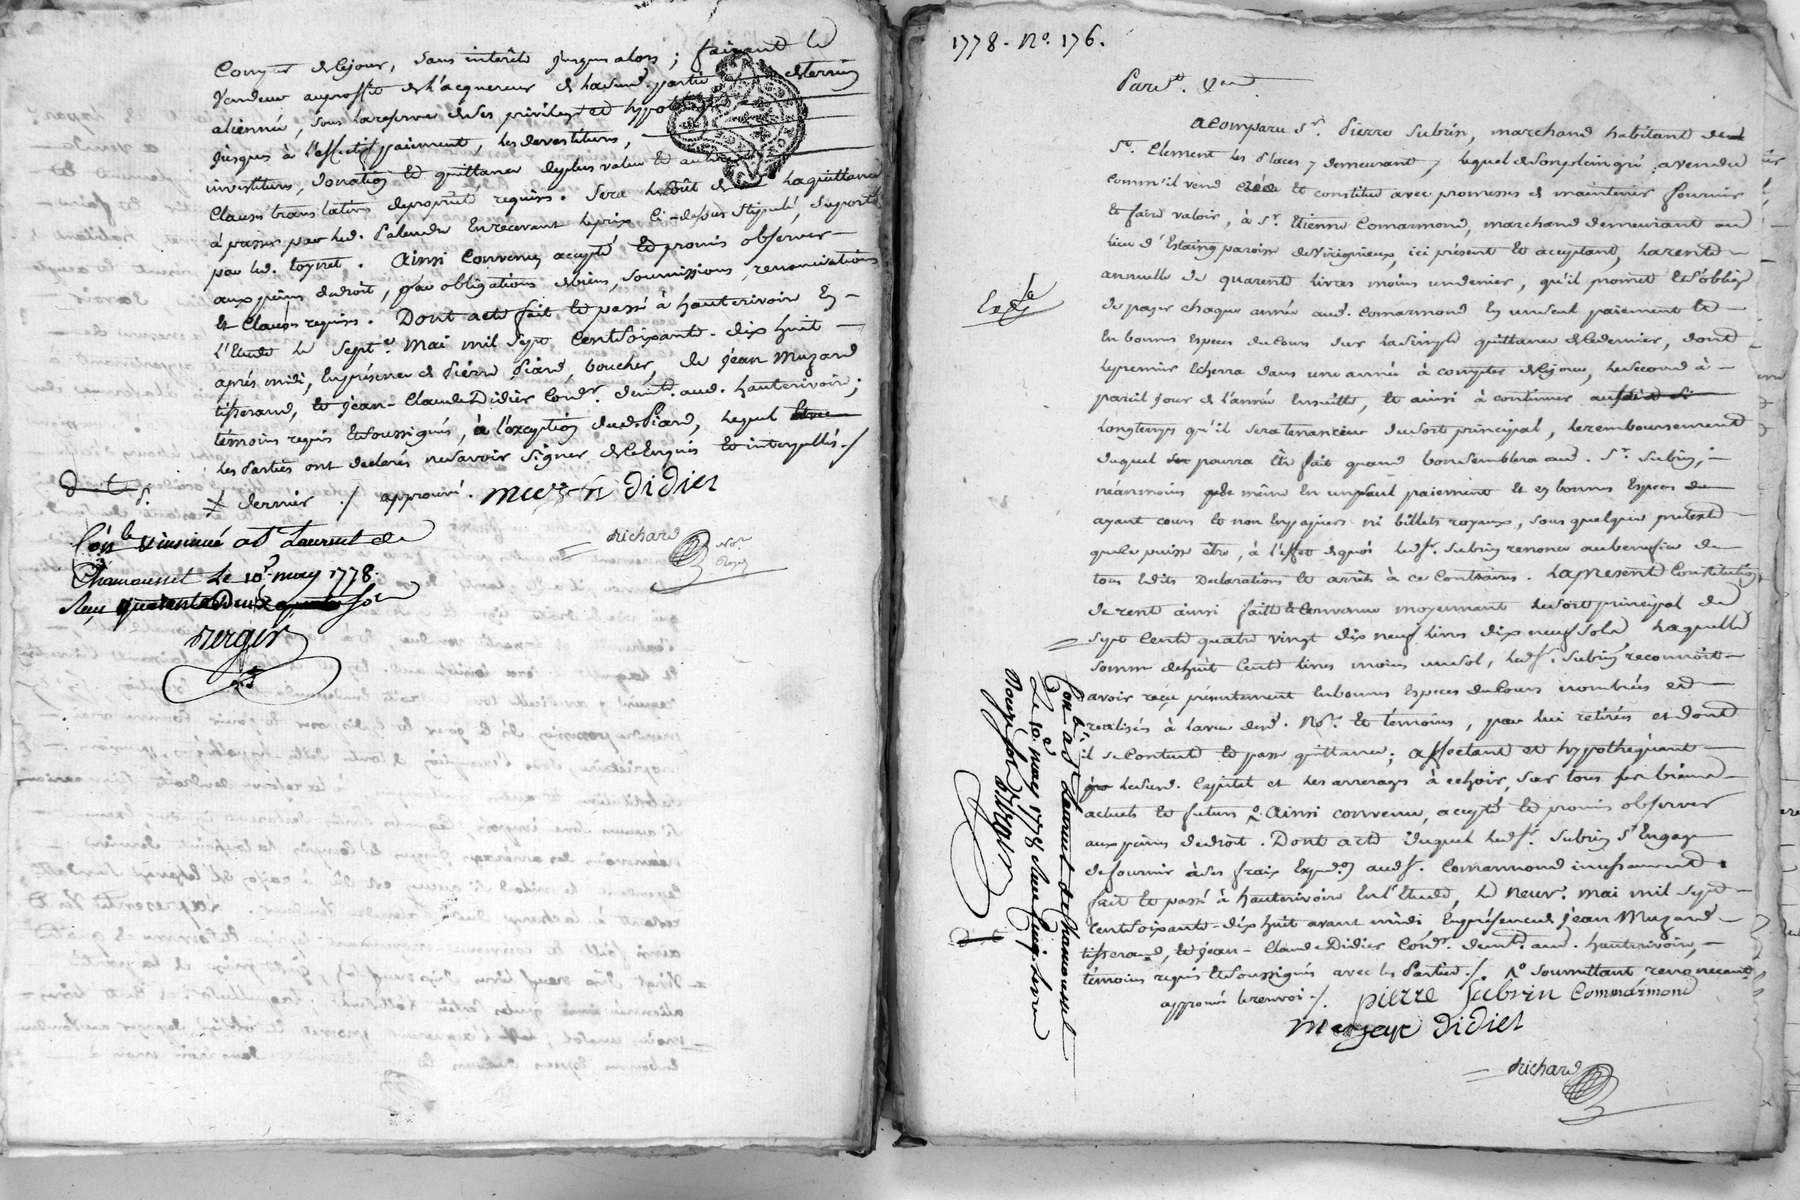 compter de ce jour, sans interêts jusques alors ; faisant le
vendeur au proffit de l'acquereur de lad. partie de terrein
alienné, sous la reserve de ses privilege et hypothèque
jusques à l'effectif paiement, les devestitures,
investiture, donation et quittance de plus value et autres
clauses translatives de proprieté requises. Sera le coût de la quittance
à passer par led. Palandre en recevant le prix ci-dessus stipulé, suporté
par led. Loyret. Ainsi convenu, accepté et promis observer
aux peines de droit, par obligations de biens, soumissions, renonciations
et clauses requises. Dont acte fait et passé à hauterivoire en
l'Etude le sept.e mai mil sept cent soixante-dix huit
après midi, en présence de Pierre Piard, boucher, de Jean Muzard
tisserand, et Jean-Claude Didier cord.r demt. aud. hauterivoire ;
témoins requis et soussignés, à l'exception dud. Piard, lequel
les Parties ont déclarés ne savoir signer de ce enquis et interpellés ./.
dernier ./. approuvé. Muzard Didier
richard
Not. royal
Con.lé & insinué a St Laurent de
Chamousset le 10.e may 1778.
Reçu
Berger
1778. No. 176.
Pard.t
A comparu Sr. Pierre Subrin, marchand habitant de
St. Clement les Places y demeurant, lequel de son plein gré a vendu
comm'il vend crée et constitue avec promesses de maintenir fournir
et faire valoir, à Sr. Etienne Comarmond, marchand demeurant au
lieu d'Estaing paroisse de Virignieux, ici présent et acceptant, la rente
annuelle de quarente livres moins un denier, qu'il promet et s'oblige
Exp.é
de payer chaque année aud. Comarmond en un seul paiement et
en bonnes especes du cours sur la simple quittance de ce dernier, dont
le premier echerra dans une année à compter de ce jour, le second à
pareil jour de l'année ensuitte, et ainsi à continuer aussi
longtemps qu'il sera tenancier du sort principal, le remboursement
duquel pourra être fait quand bon semblera aud. Sr. Subrin ;
néanmoins de même en un seul paiement et en bonnes especes
ayant cours et non en papiers ni billets royaux, sous quelque pretexte
que le puisse être, à l'effet de quoi led. Sr. Subrin renonce au benefice de
tous Edits Declarations et arrêts à ce contraires. La présente constitution
de rente ainsi faitte et convenue moyennant le sort principal de
sept cent quatre vingt dix neuf livres dix neuf sols laquelle
somme de huit cent livres moins un sol, led. Sr. Subrin reconnoit
avoir reçu présentement en bonnes especes du cours nombrées et
realisés à la vue desd. No.re et témoins, par lui retirées et dont
il se contente et passe quittance ; affectant et hypothèquant
led. capital et les arrerages à echoir, sur tous ses biens
actuels et futurs. Ainsi convenu, accepté et promis observer
aux peines de droit. Dont acte duquel led. Sr. Subrin s'engage
de fournir à ses frais Exped.on aud. Sr. Comarmond incessamment
fait et passé à hauterivoire en l'Etude, le neuv.e mai mil sept
cent soixante-dix huit avant midi en présence de Jean Muzard
tisserand, et Jean-Claude Didier cord.r demt. aud. hauterivoire,
témoins requis et soussignés avec les Parties ./. soumettant renonceant
approuvé le renvoi ./. pierre Subrin Commarmond
Muzard Didier
richard
Con.lé a St Laurent de Chamousset
Le 10.e may 1778 Reçu cinq livres
Douze sols Bergier